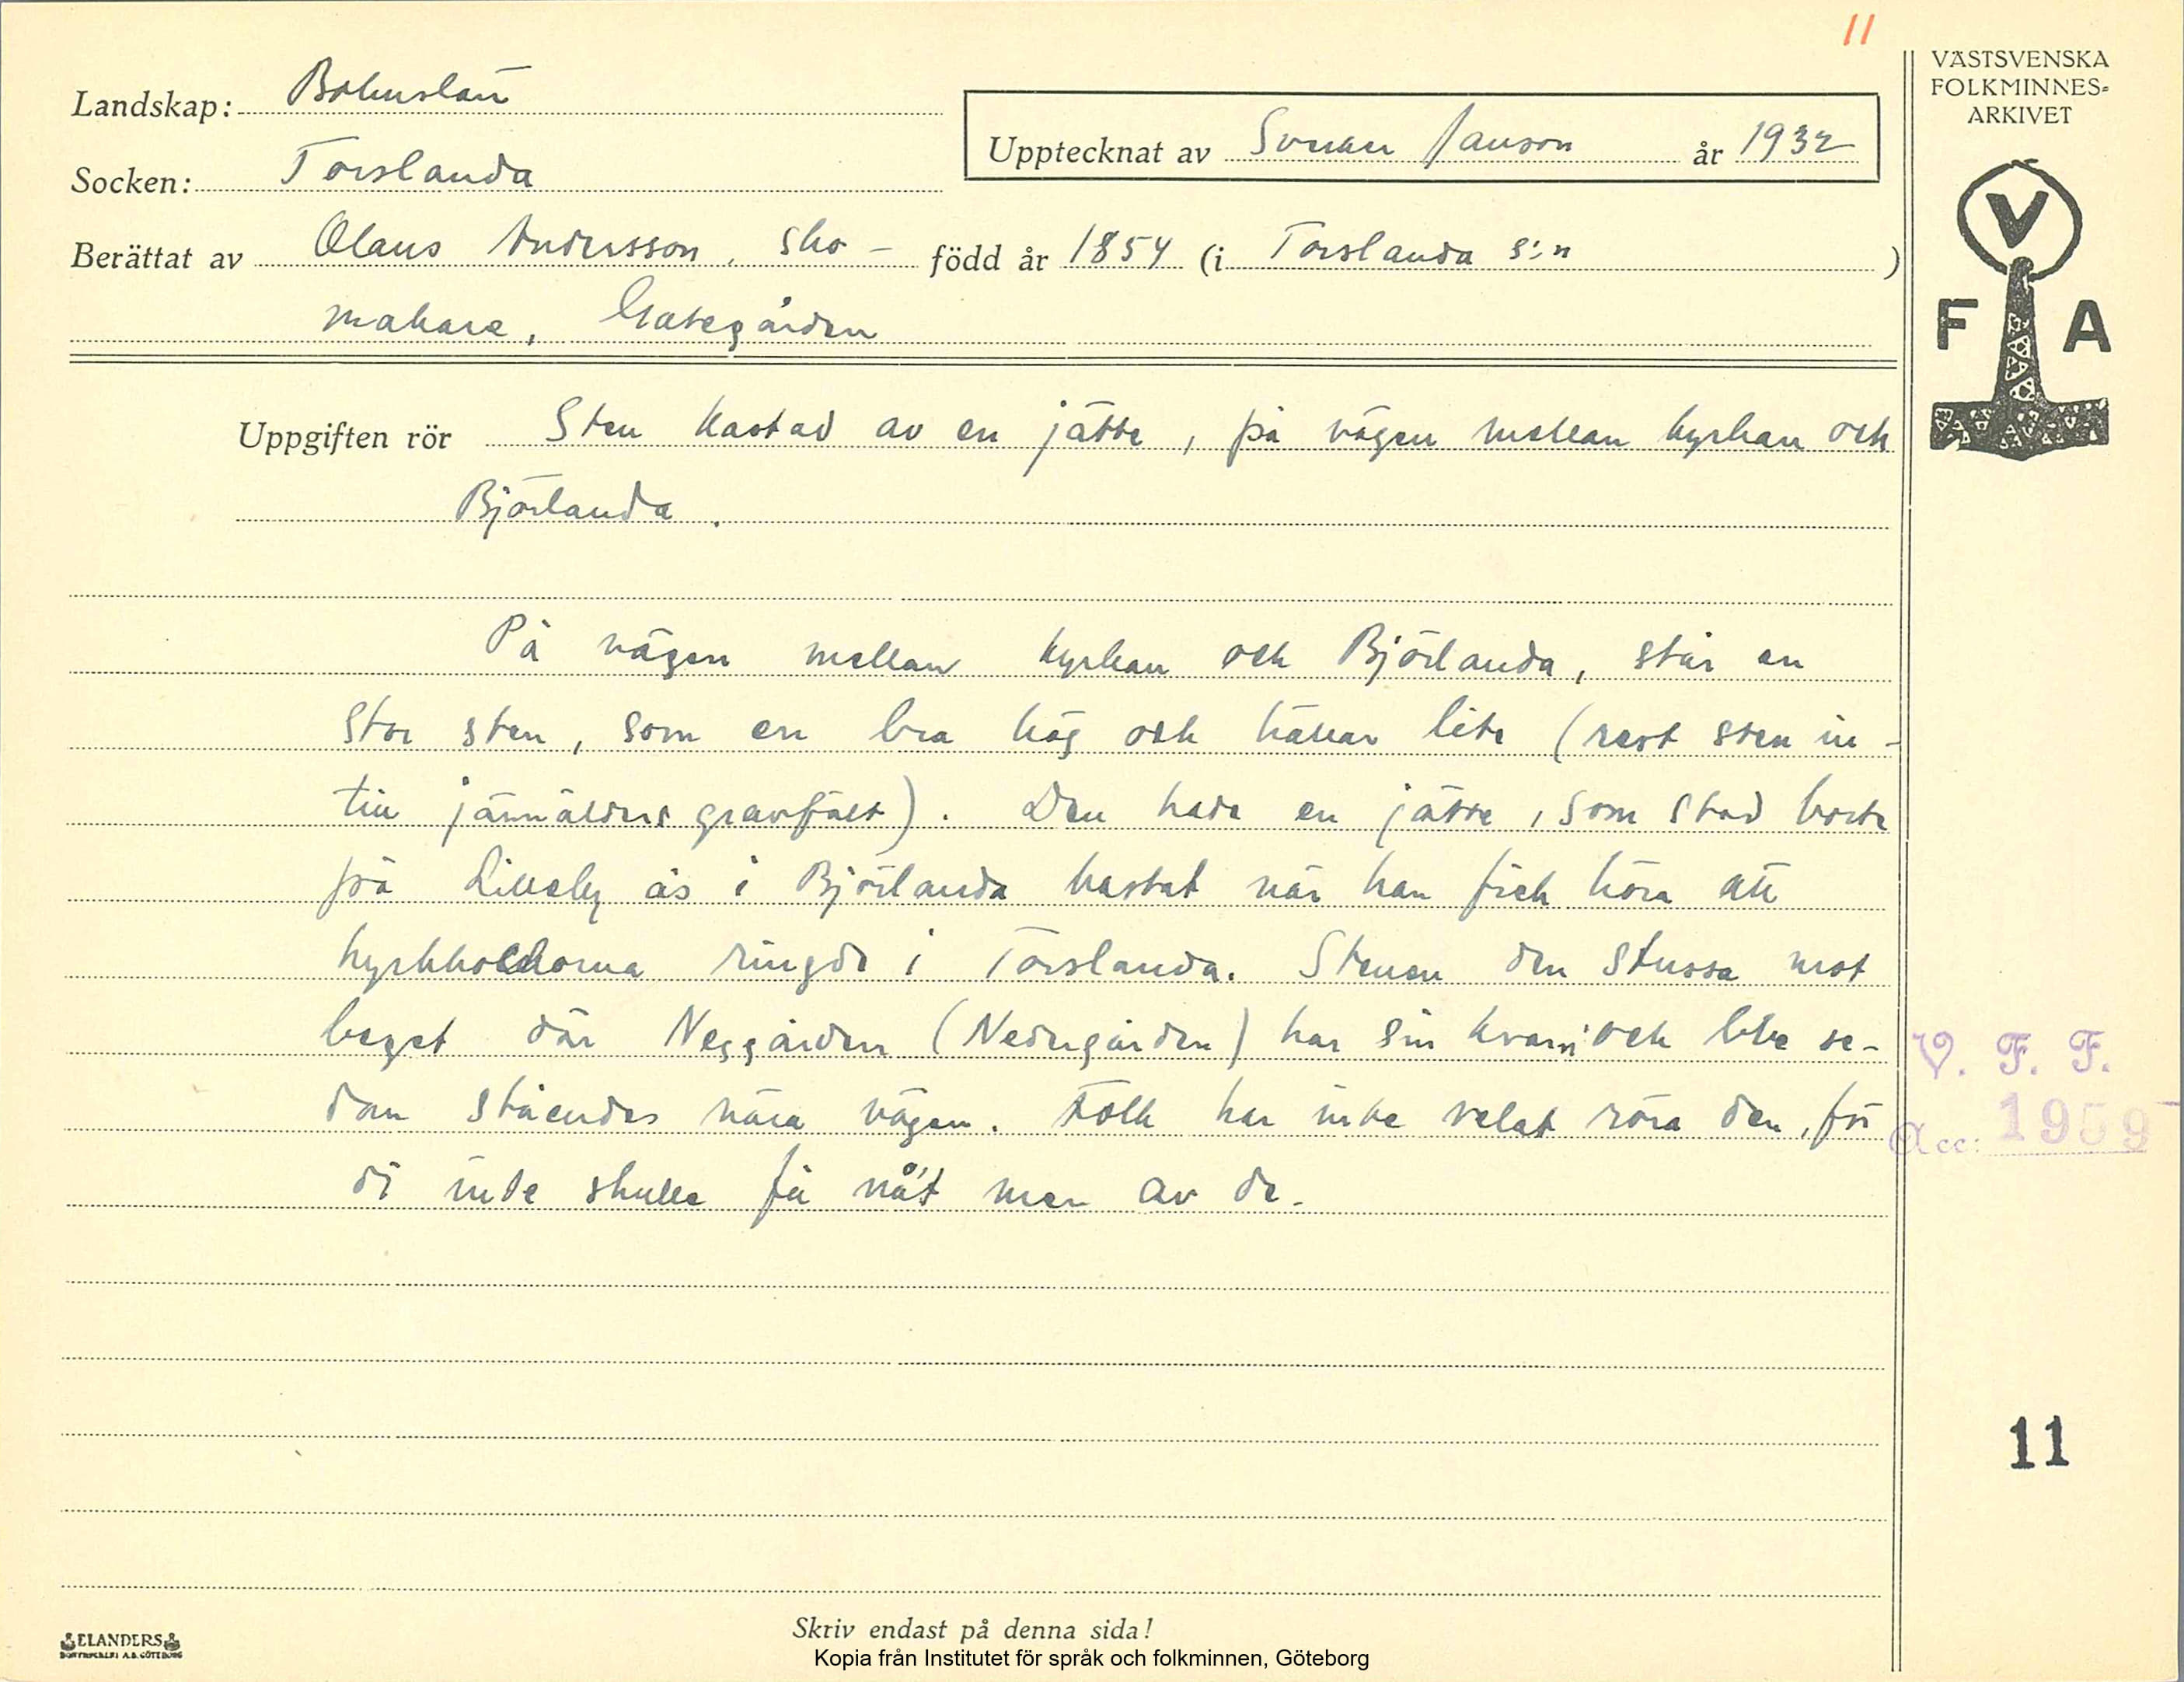 11
VÄSTSVENSKA
FOLKMINNES-
ARKIVET
Landskap: Bohuslän
Upptecknat av Svenker Janson år 1932
Socken: Torslanda
Berättat av Olaus Andersson, sko- född år 1854 (i Torslanda s:n )
makare, Gategården
V
F A
Uppgiften rör Sten kastad av en jätte, på vägen mellan kyrkan och
Björlanda.
På vägen mellan kyrkan och Björlanda, står en
stor sten, som en bra hög och hällar lite (rest sten in-
till järnålders gravfält). Den hade en jätte, som stod borte
på Lilleby ås i Björlanda kastat när han fick höra att
kyrkklockorna ringde i Torslanda. Stenen den stussa mot
berget där Neggården (Nedergården) har sin kvarn och blev se-
dan ståendes nära vägen. Folk har inte velat röra den, för
di inte skulle få nå't men av de.
V. F. F.
Acc: 1959
11
ELANDERS
Skriv endast på denna sida!
Kopia från Institutet för språk och folkminnen, Göteborg